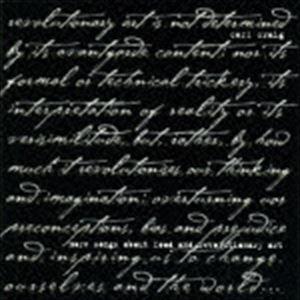 revolutionary art is not determined
carl craig
by its avantgarde content, nor its
formal or technical trickery, its
interpretation of reality or its
verisimilitude, but, rather, by, how
much it revolutionses our thinking
and imagination; overturning our
preconceptions, bias and prejudice
more songs about food and revolutionary art
and inspiring us to change
ourselves and the world...